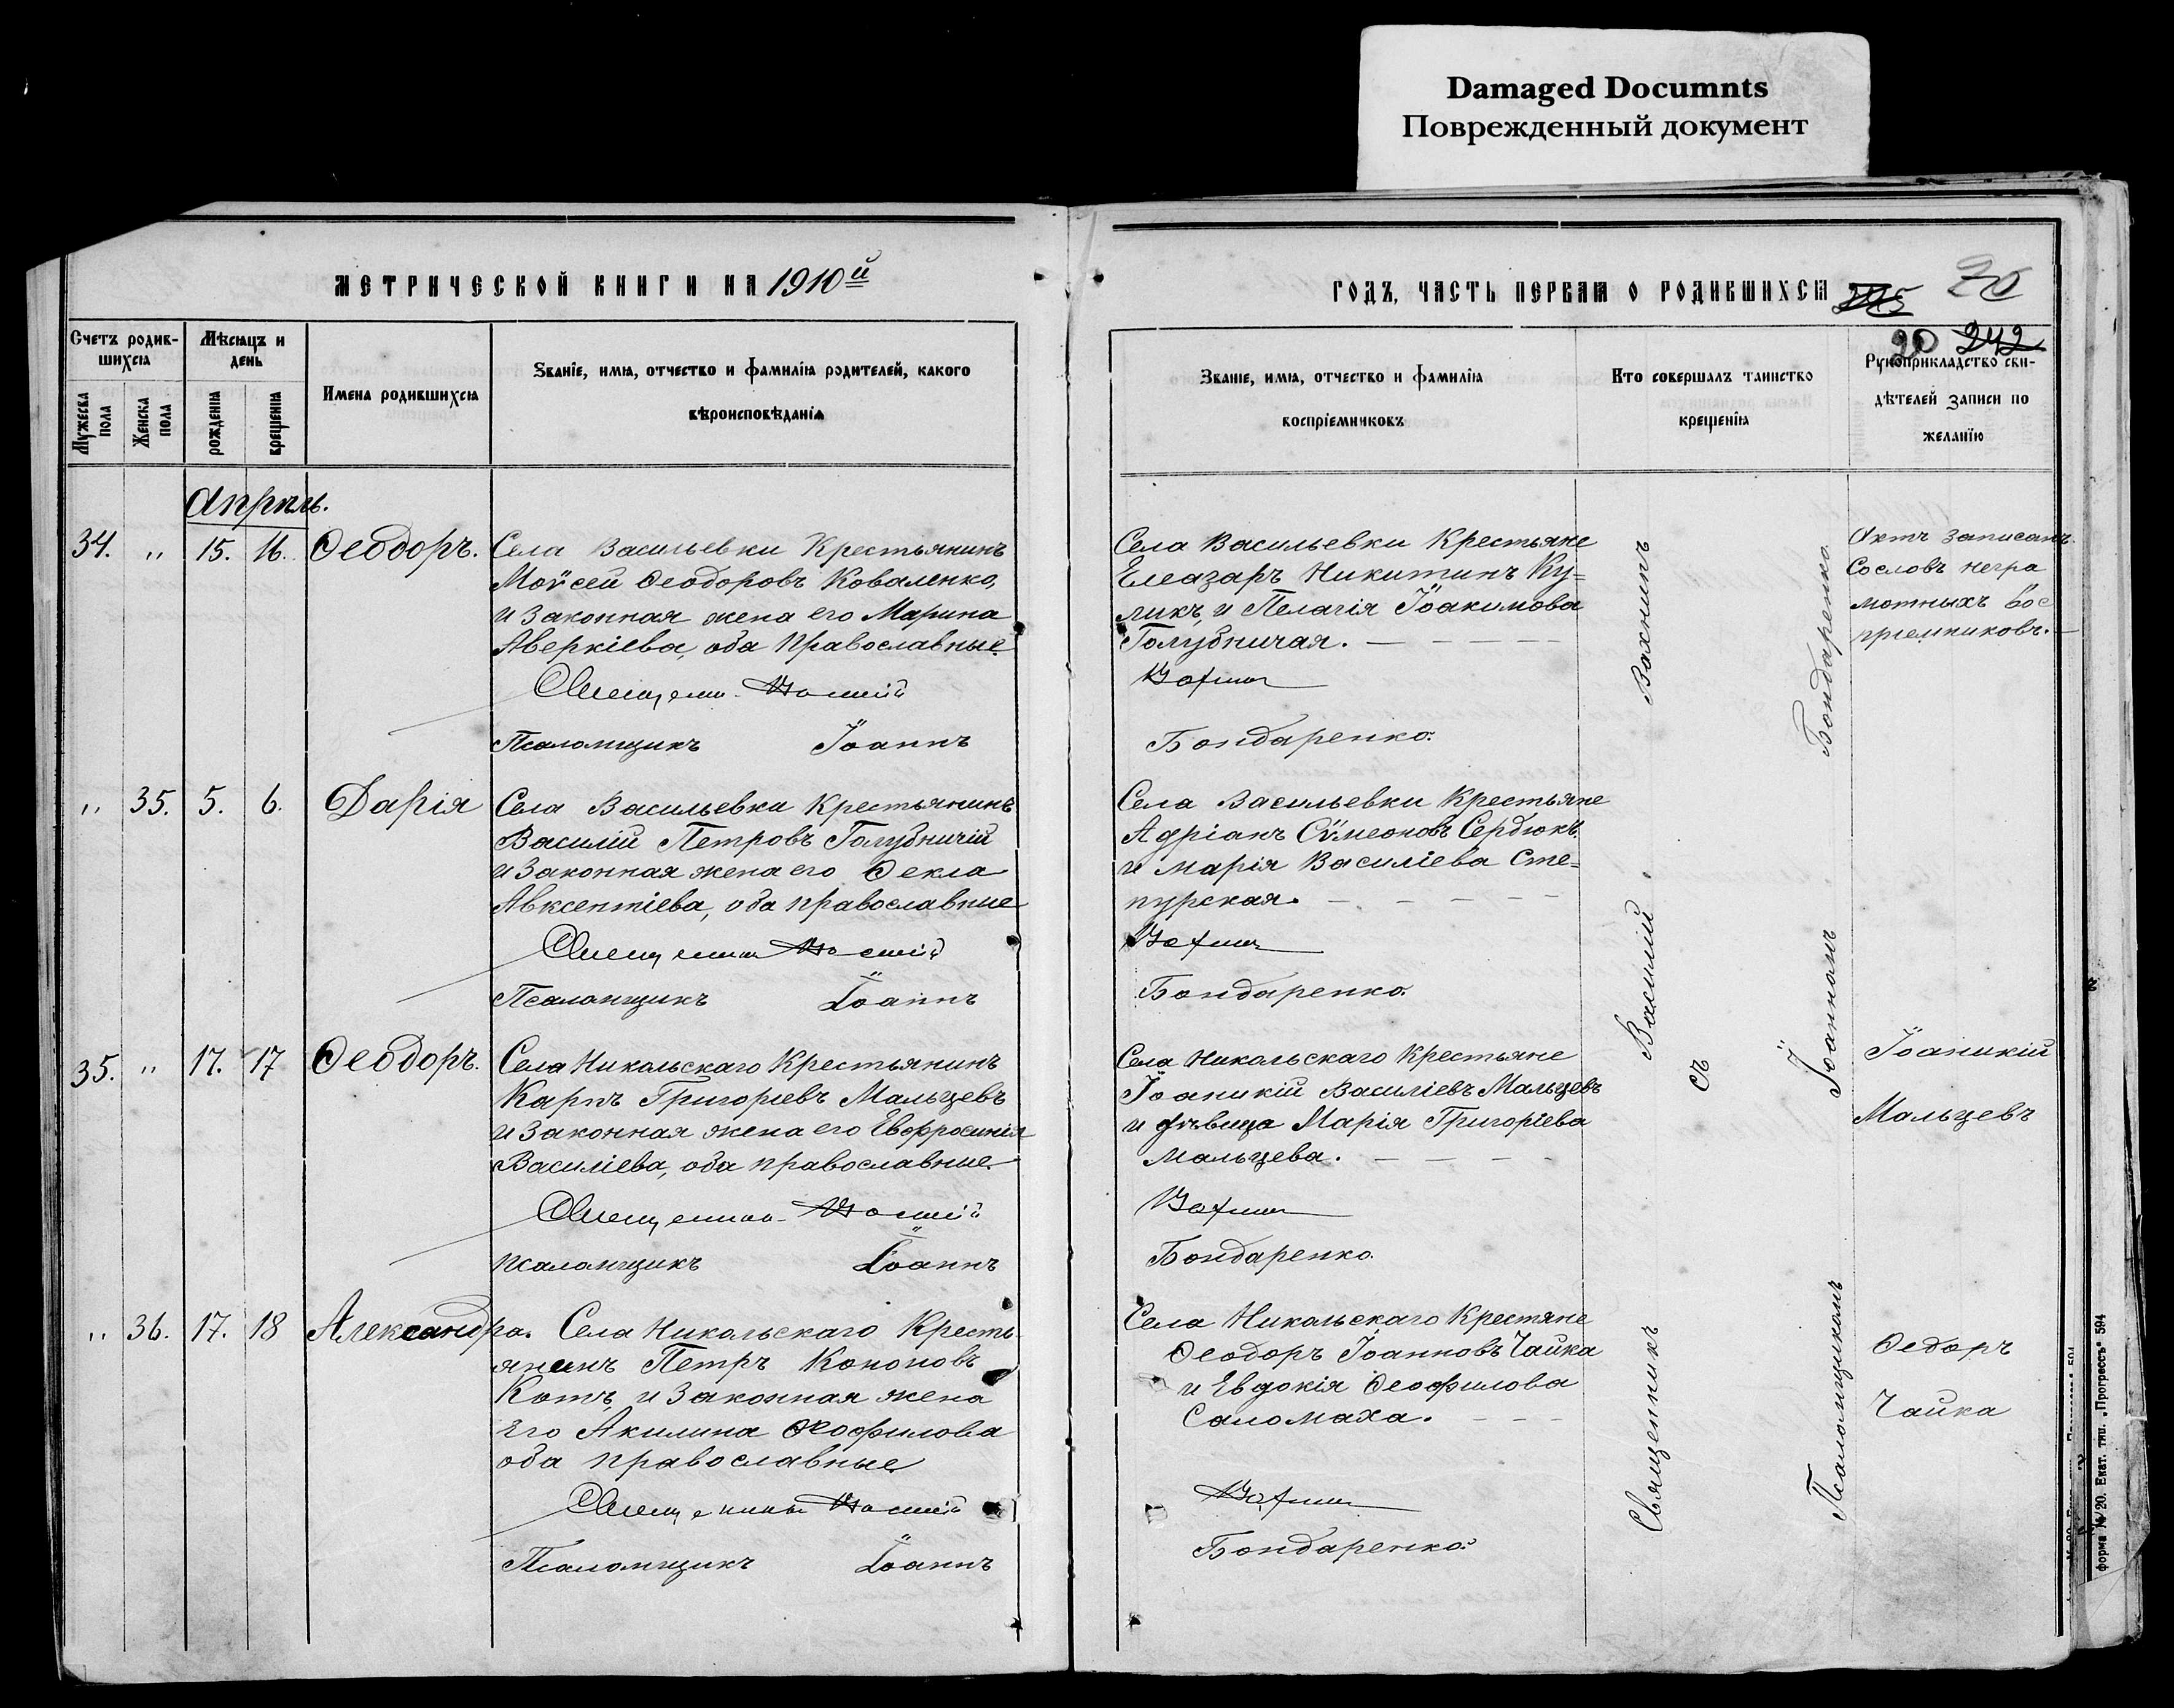 Damaged Documnts
Поврежденный документ
МЕТРИЧЕСКОЙ КНИГИ НА 1910й
Счетъ родив-
шихся
Мѣсяцъ и
день
Имена родившихся
Званіе, имя, отчество и фамилія родителей, какого
вѣроисповѣданія
Мужеска
пола
Женска
пола
рожденія
крещенія
Апрѣль.
34. „ 15. 16. Ѳеодоръ.
Села Васильевки Крестьянинъ
Моѵсей Ѳеодоровъ Коваленко,
и Законная жена его Марина
Аверкіева, оба Православные.
Священн. Василій
Псаломщикъ Іоаннъ
„ 35. 5. 6. Дарія
Села Васильевки Крестьянинъ
Василій Петровъ Голубничій
и Законная жена его Ѳекла
Авксентіева, оба православные
Священник Василій
Псаломщикъ Іоаннъ
35. „ 17. 17 Ѳеодоръ.
Села Никольскаго Крестьянинъ
Карпъ Григоріевъ Мальцевъ
и Законная жена его Евфросинія
Василіева, оба православные.
Священник Василій
Псаломщикъ Іоаннъ
„ 36. 17. 18 Александра.
Села Никольскаго Кресть-
янинъ Петръ Кононовъ
Котъ, и Законная жена
Его Акилина Ѳеофилова
оба православные
Священникъ Василій
Псаломщикъ Іоаннъ
ГОДЪ, ЧАСТЬ ПЕРВАЯ О РОДИВШИХСЯ
20 242
Званіе, имя, отчество и фамилія
воспріемниковъ
Кто совершалъ таинство
крещенія
Рукоприкладство сви-
дѣтелей записи по
желанію
Села Васильевки Крестьяне
Елеазаръ Никитинъ Ку=
ликъ, и Пелагія Іоакимова
Голубничая.
Вахнин
Бондаренко.
Села Васильевки Крестьяне
Адріанъ Сѵмеоновъ Сердюкъ.
и Марія Василіева Сте=
пурская.
Вахнин
Бондаренко.
Села Никольскаго Крестьяне
Іоаникій Василіевъ Мальцевъ
и дѣвица Марія Григоріева
Мальцева.
Вахнин
Бондаренко.
Села Никольскаго Крестяне
Ѳеодоръ Іоанновъ Чайка
и Евдокія Ѳеофилова
Саломаха.
Вахнин
Бондаренко.
Священникъ Василій Вахнинъ
съ
Псаломщикомъ Іоанномъ Бондаренко.
Актъ записанъ
Со словъ негра
мотныхъ вос
пріемниковъ.
Іоаникій
Мальцевъ
Ѳедоръ
Чайка
форма № 20. Екат. тип. „Прогрессъ“ 594